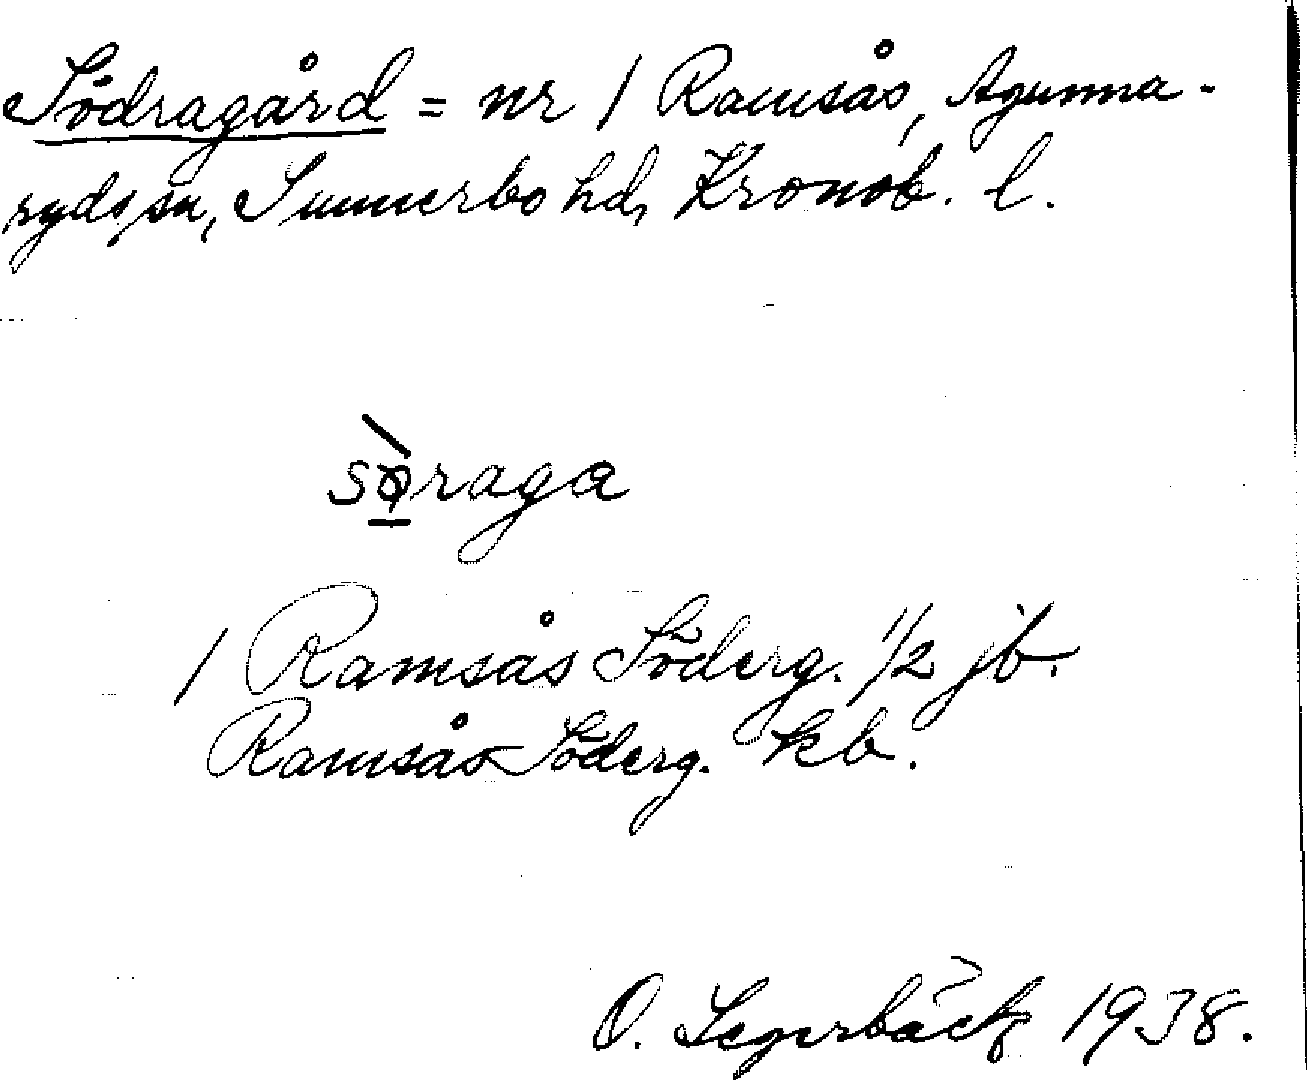 Södragård = nr 1 Ramsås, Agunna-
ryds sn, Sunnerbo hd, Kronob. l.
sø̀raga
1 Ramsås Söderg. 1/2 jb.
Ramsås Söderg. kb.
O. Segerbäck 1938.